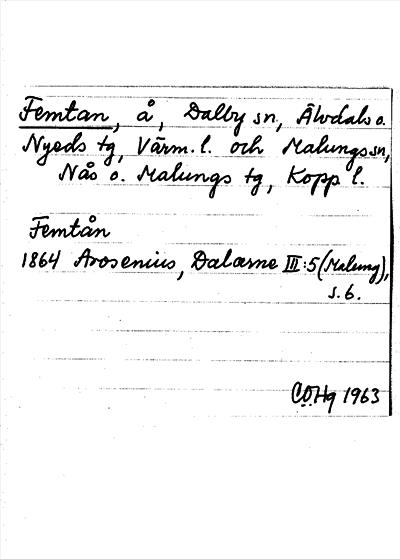 Femtan, å, Dalby sn, Älvdals o.
Nyeds tg, Värm. l. och Malungs sn,
Nås o. Malungs tg, Kopp l.
Femtån
1864 Arosenius, Dalarne III:5 (Malung),
s. 6.
COHg 1963